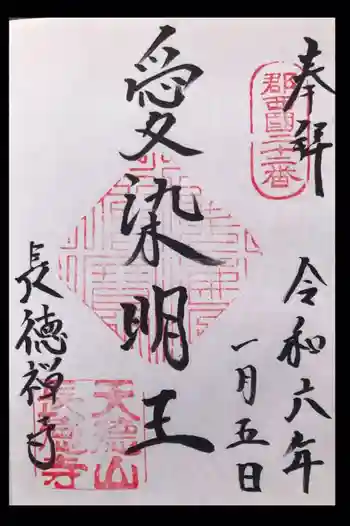 奉拝
郡西國二十二番
令和六年
一月五日
愛染明王
長徳禅寺
天徳山
長徳寺